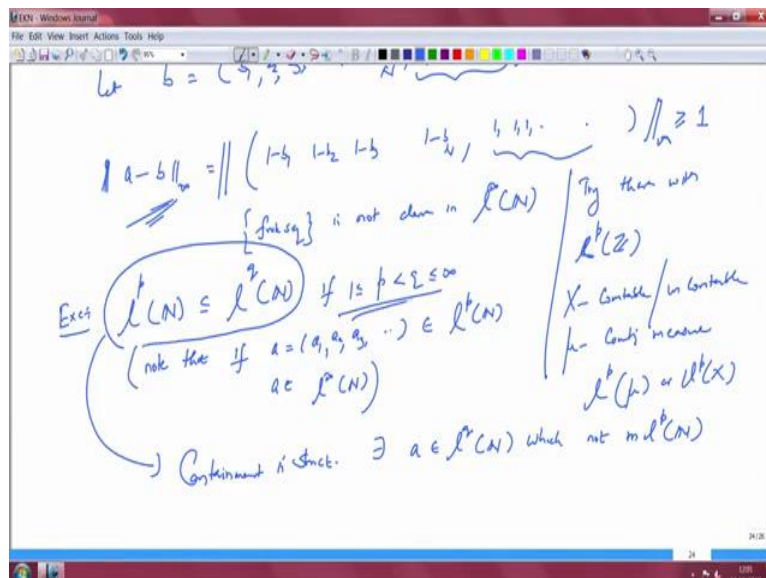 EKN - Windows Journal
File Edit View Insert Actions Tools Help
Let b = (b₁, b₂, b₃,
‖a-b‖∞ = ‖(1-b₁ 1-b₂ 1-b₃ 1-b_N, 1, 1, 1, . . )‖∞ ≥ 1
{fnt seq} is not dense in l^∞(N)
Exer: l^p(N) ⊆ l^q(N) if 1 ≤ p < q ≤ ∞
(note that if a = (a₁, a₂, a₃, ..) ∈ l^p(N)
a ∈ l^∞(N))
Containment is strict. ∃ a ∈ l^q(N) which not in l^p(N)
Try them with
l^p(Z)
X - Countable / un countable
μ - Countg measure
l^p(μ) or l^p(X)
24/26
24
12:05